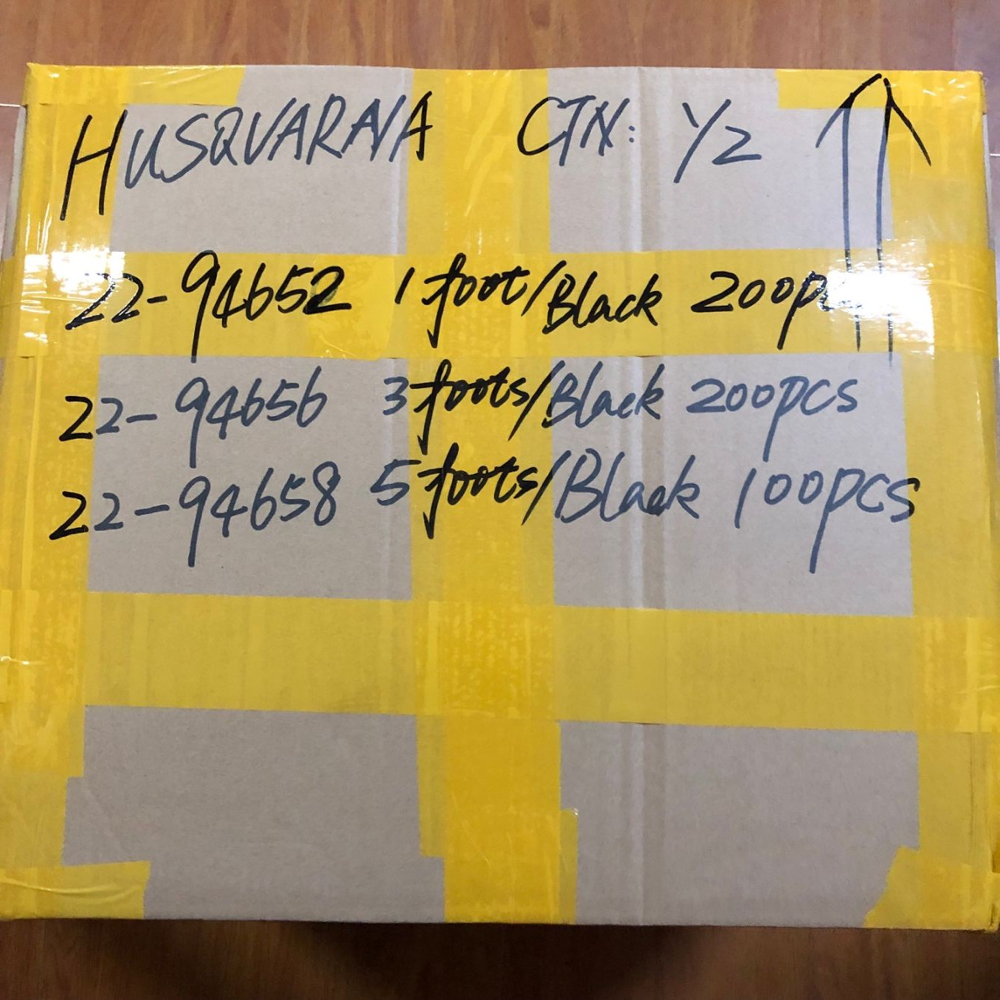 HUSQVARNA CTN: 1/2
22-94652 1 foot/Black 200pcs
22-94656 3 foots/Black 200pcs
22-94658 5 foots/Black 100pcs